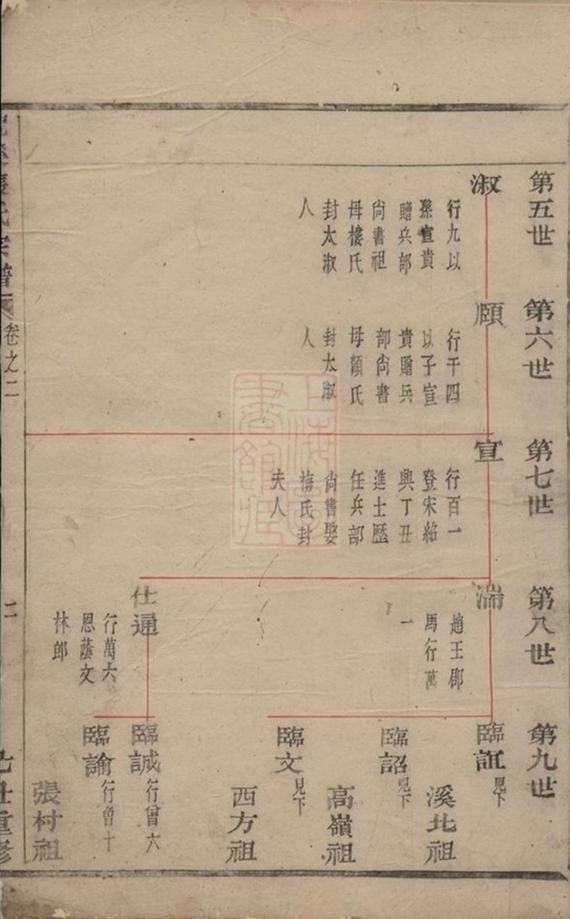 第五世
第六世
第七世
第八世
第九世
淑
行九以
孫宣貴
贈兵部
尚書祖
母樓氏
封太淑
人
頤
行千四
以子宣
貴贈兵
部尚書
母顏氏
封太淑
人
宣
行百一
登宋紹
興丁丑
進士歷
任兵部
尚書娶
梅氏封
夫人
湍
趙王郡
馬行萬
一
仕通
行萬六
恩蔭文
林郎
臨誼
見下
溪北祖
臨詔
見下
高嶺祖
臨文
見下
西方祖
臨誠
行曾六
臨諭
行曾十
張村祖
張氏宗譜
卷之二
二
重修